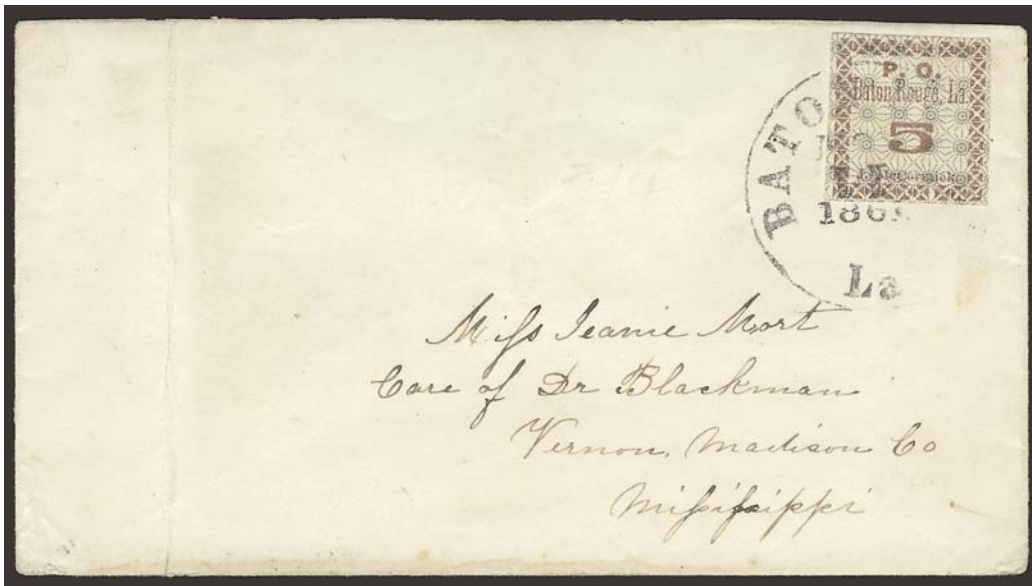 P. O.
Baton Rouge, La.
5
J. McCormick
BATO
1861
La
Miss Jeanie Mort
Care of Dr Blackman
Vernon, Madison Co
Mississippi